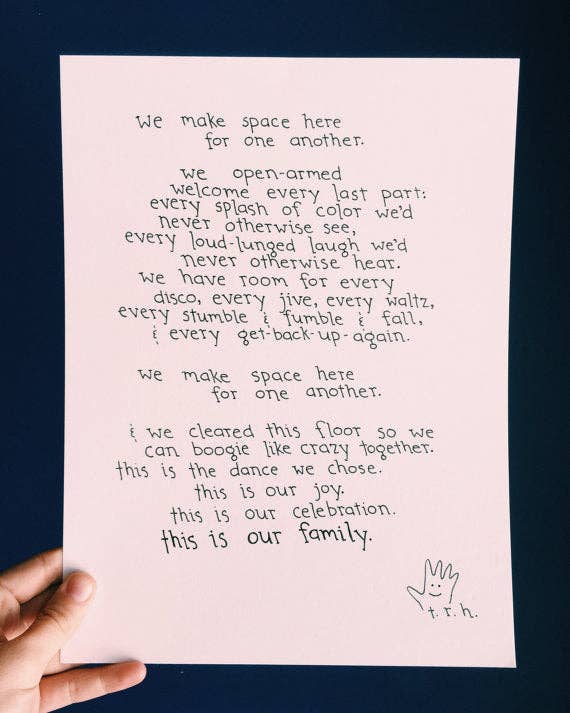 we make space here
for one another.
we open-armed
welcome every last part:
every splash of color we'd
never otherwise see,
every loud-lunged laugh we'd
never otherwise hear.
we have room for every
disco, every jive, every waltz,
every stumble & fumble & fall,
& every get-back-up-again.
we make space here
for one another.
& we cleared this floor so we
can boogie like crazy together.
this is the dance we chose.
this is our joy.
this is our celebration.
this is our family.
t. r. h.